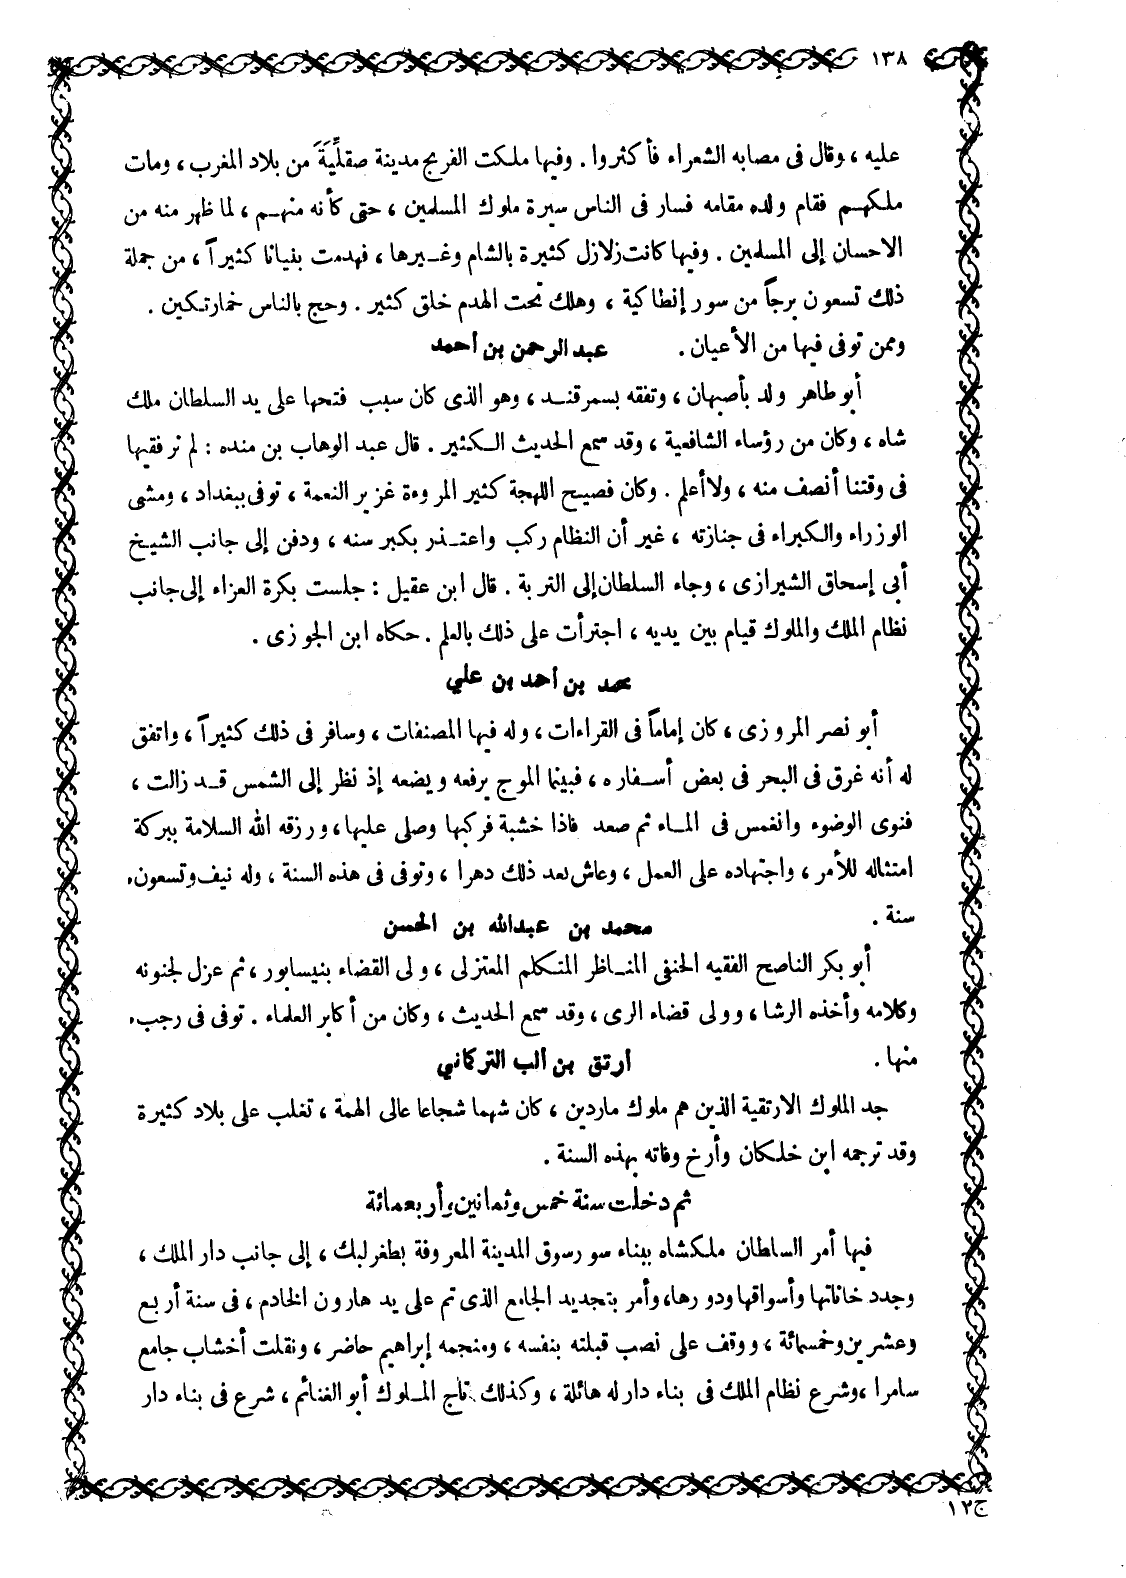 ١٣٨
عليه ، وقال فى مصابه الشعراء فأكثروا . وفيها ملكت الفرنج مدينة صقلِّيَةَ من بلاد المغرب ، ومات
ملكهم فقام ولده مقامه فسار فى الناس سيرة ملوك المسلمين ، حتى كأنه منهم ، لما ظهر منه من
الاحسان إلى المسلمين . وفيها كانت زلازل كثيرة بالشام وغيرها ، فهدمت بنيانا كثيراً ، من جملة
ذلك تسعون برجاً من سور إنطاكية ، وهلك تحت الهدم خلق كثير . وحج بالناس خمارتكين .
وممن توفى فيها من الأعيان . عبد الرحمن بن أحمد
أبو طاهر ولد بأصبهان ، وتفقه بسمرقند ، وهو الذى كان سبب فتحها على يد السلطان ملك
شاه ، وكان من رؤساء الشافعية ، وقد سمع الحديث الكثير . قال عبد الوهاب بن منده : لم نر فقيها
فى وقتنا أنصف منه ، ولا أعلم . وكان فصيح اللهجة كثير المروءة غزير النعمة ، توفى ببغداد ، ومشى
الوزراء والكبراء فى جنازته ، غير أن النظام ركب واعتذر بكبر سنه ، ودفن إلى جانب الشيخ
أبى إسحاق الشيرازى ، وجاء السلطان إلى التربة . قال ابن عقيل : جلست بكرة العزاء إلى جانب
نظام الملك والملوك قيام بين يديه ، اجترأت على ذلك بالعلم . حكاه ابن الجوزى .
محمد بن أحمد بن علي
أبو نصر المروزى ، كان إماماً فى القراءات ، وله فيها المصنفات ، وسافر فى ذلك كثيراً ، واتفق
له أنه غرق فى البحر فى بعض أسفاره ، فبينما الموج يرفعه ويضعه إذ نظر إلى الشمس قد زالت ،
فنوى الوضوء وانغمس فى الماء ثم صعد فاذا خشبة فركبها وصلى عليها ، ورزقه الله السلامة ببركة
امتثاله للأمر ، واجتهاده على العمل ، وعاش بعد ذلك دهرا ، وتوفى فى هذه السنة ، وله نيف وتسعون
سنة . محمد بن عبدالله بن الحسن
أبو بكر الناصح الفقيه الحنفى المناظر المتكلم المعتزلى ، ولى القضاء بنيسابور ، ثم عزل لجنونه
وكلامه وأخذه الرشا ، وولى قضاء الرى ، وقد سمع الحديث ، وكان من أكابر العلماء . توفى فى رجب
منها . أرتق بن ألب التركماني
جد الملوك الارتقية الذين هم ملوك ماردين ، كان شهما شجاعا عالى الهمة ، تغلب على بلاد كثيرة
وقد ترجمه ابن خلكان وأرخ وفاته بهذه السنة .
ثم دخلت سنة خمس وثمانين وأربعمائة
فيها أمر السلطان ملكشاه ببناء سور سوق المدينة المعروفة بطغرلبك ، إلى جانب دار الملك ،
وجدد خاناتها وأسواقها ودورها ، وأمر بتجديد الجامع الذى تم على يد هارون الخادم ، فى سنة أربع
وعشرين وخمسمائة ، ووقف على نصب قبلته بنفسه ، ومنجمه إبراهيم حاضر ، ونقلت أخشاب جامع
سامرا ، وشرع نظام الملك فى بناء دار له هائلة ، وكذلك تاج الملوك أبو الغنائم ، شرع فى بناء دار
ج١٢